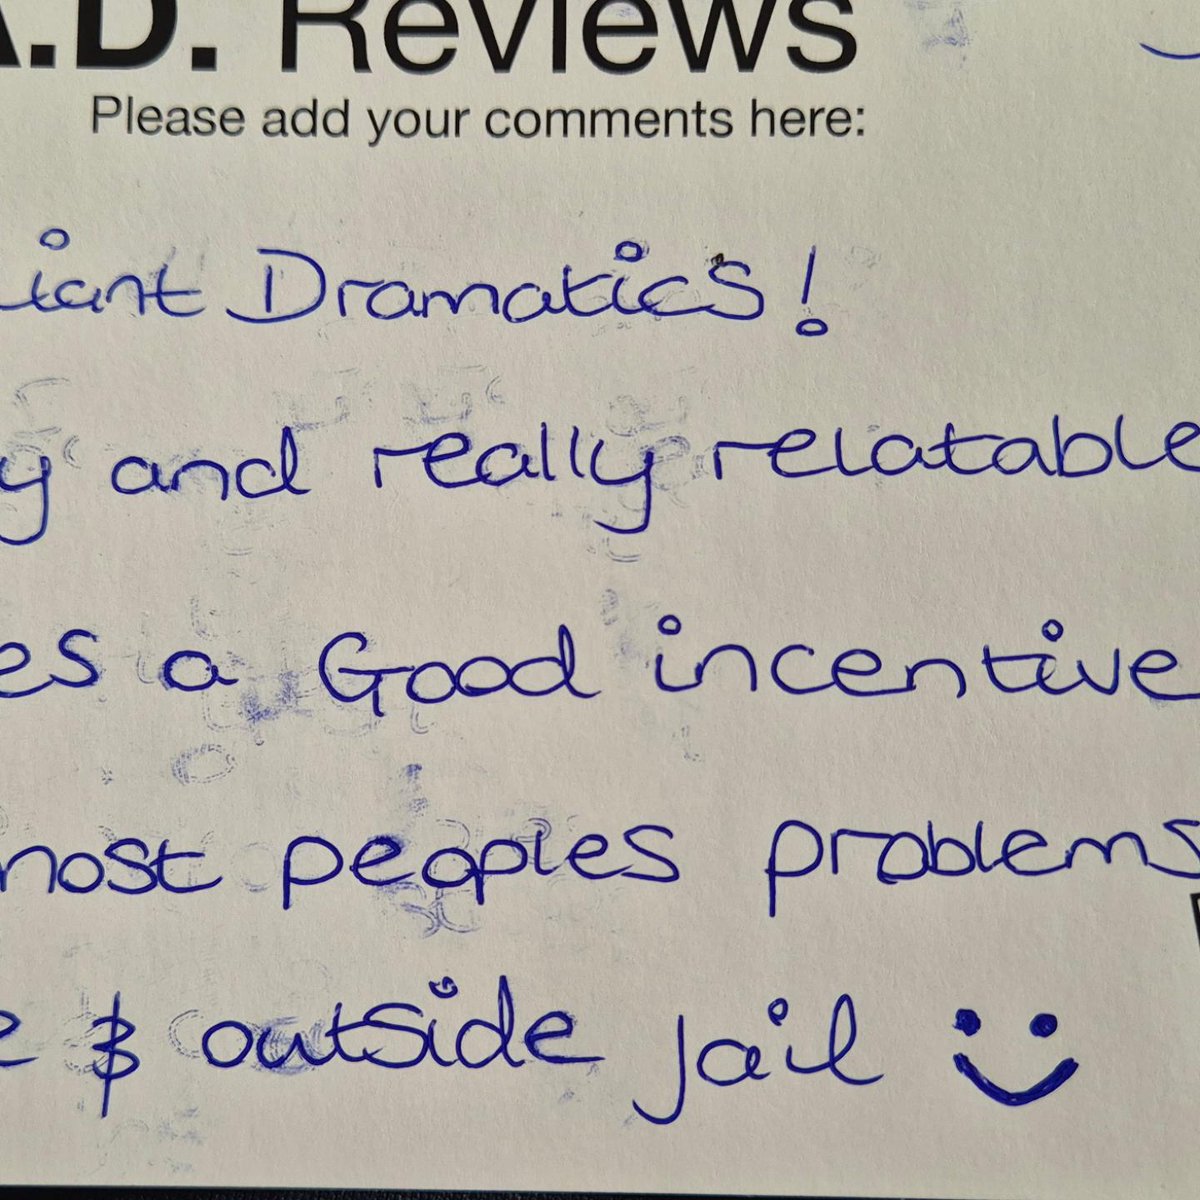 A.D. Reviews
Please add your comments here:
iant Dramatics!
y and really relatable
es a Good incentive
most peoples problems
e & outside jail